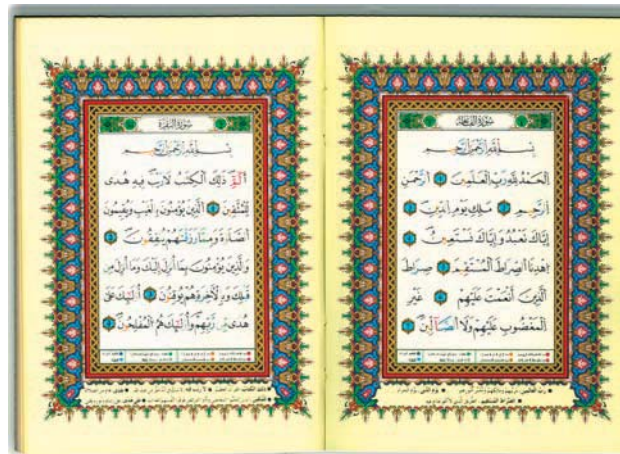 سُورَةُ الفَاتِحَةِ
بِسْمِ ٱللَّهِ ٱلرَّحْمَٰنِ ٱلرَّحِيمِ
ٱلْحَمْدُ لِلَّهِ رَبِّ ٱلْعَٰلَمِينَ ٱلرَّحْمَٰنِ
ٱلرَّحِيمِ مَٰلِكِ يَوْمِ ٱلدِّينِ
إِيَّاكَ نَعْبُدُ وَإِيَّاكَ نَسْتَعِينُ
ٱهْدِنَا ٱلصِّرَٰطَ ٱلْمُسْتَقِيمَ صِرَٰطَ
ٱلَّذِينَ أَنْعَمْتَ عَلَيْهِمْ غَيْرِ
ٱلْمَغْضُوبِ عَلَيْهِمْ وَلَا ٱلضَّآلِّينَ
رب العالمين
الصراط المستقيم
سُورَةُ البَقَرَةِ
بِسْمِ ٱللَّهِ ٱلرَّحْمَٰنِ ٱلرَّحِيمِ
الٓمٓ ذَٰلِكَ ٱلْكِتَٰبُ لَا رَيْبَ فِيهِ هُدًى
لِّلْمُتَّقِينَ ٱلَّذِينَ يُؤْمِنُونَ بِٱلْغَيْبِ وَيُقِيمُونَ
ٱلصَّلَوٰةَ وَمِمَّا رَزَقْنَٰهُمْ يُنفِقُونَ
وَٱلَّذِينَ يُؤْمِنُونَ بِمَآ أُنزِلَ إِلَيْكَ وَمَآ أُنزِلَ مِن
قَبْلِكَ وَبِٱلْءَاخِرَةِ هُمْ يُوقِنُونَ أُو۟لَٰٓئِكَ عَلَىٰ
هُدًى مِّن رَّبِّهِمْ وَأُو۟لَٰٓئِكَ هُمُ ٱلْمُفْلِحُونَ